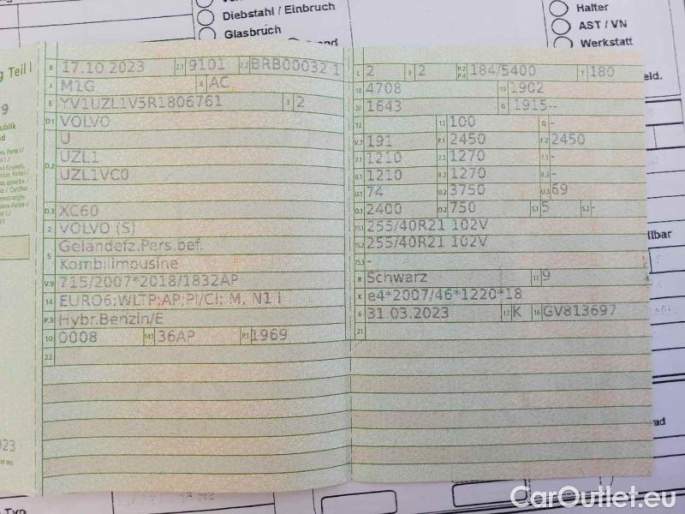 Diebstahl / Einbruch
Glasbruch
Halter
AST / VN
Werkstatt
g Teil I
B 17.10.2023 2.1 9101 2.2 BRB00032 1
J M1G 4 AC
E YV1UZL1V5R1806761 3 2
D.1 VOLVO
D.2 U
UZL1
UZL1VC0
D.3 XC60
2 VOLVO (S)
5 Geländefz.Pers.bef.
Kombilimousine
V.9 715/2007*2018/1832AP
14 EURO6;WLTP;AP;PI/CI; M, N1 I
P.3 Hybr.Benzin/E
10 0008 14.1 36AP P.1 1969
22
L 2 9 2 P.2 P.4 184/5400 T 180
18 4708 19 1902
20 1643 G 1915--
12 - 13 100 Q -
V.7 191 F.1 2450 F.2 2450
7.1 1210 7.2 1270 7.3 -
8.1 1210 8.2 1270 8.3 -
U.1 74 U.2 3750 U.3 69
O.1 2400 O.2 750 S.1 5 S.2 -
15.1 255/40R21 102V
15.2 255/40R21 102V
15.3 -
R Schwarz 11 9
K e4*2007/46*1220*18
6 31.03.2023 17 K 16 GV813697
21
CarOutlet.eu